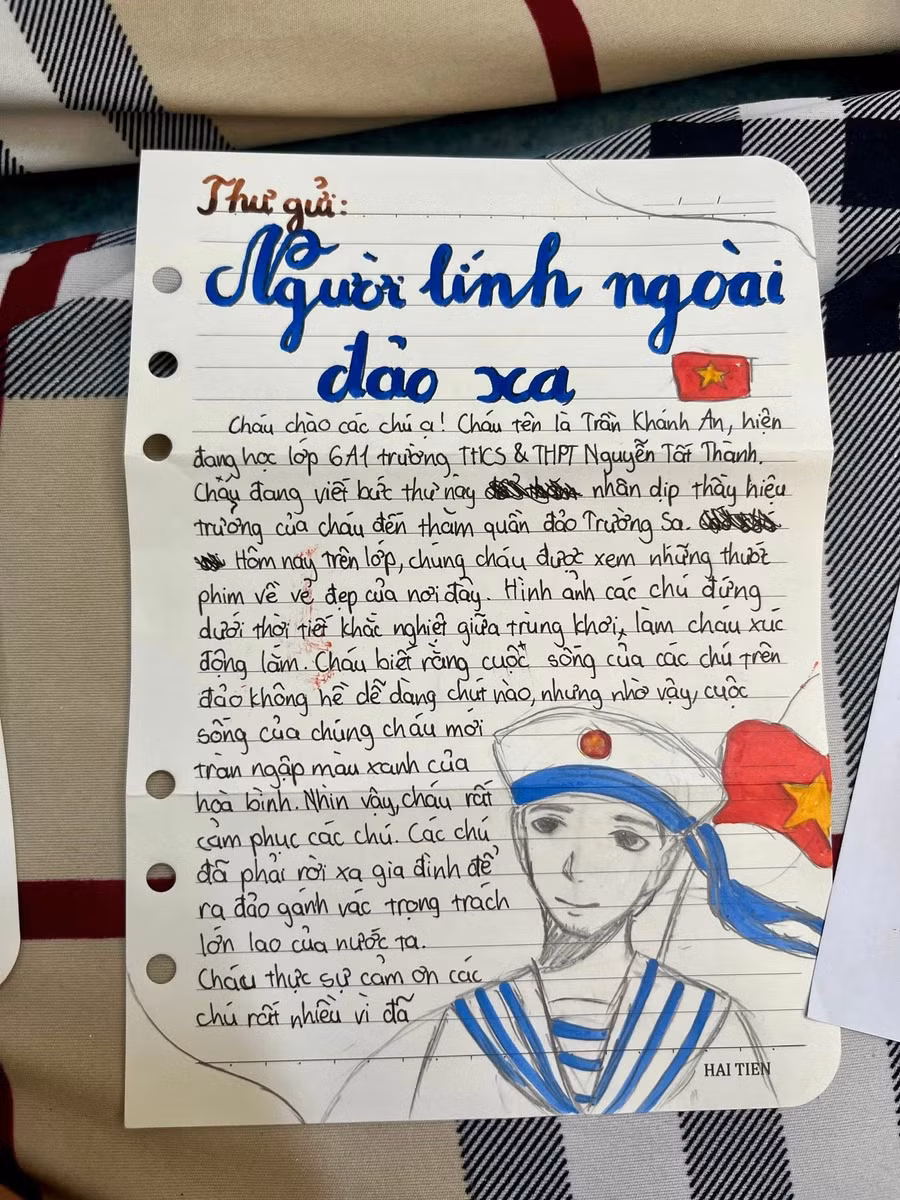 Thư gửi:
Người lính ngoài
đảo xa
Cháu chào các chú ạ! Cháu tên là Trần Khánh An, hiện
đang học lớp 6A1 trường THCS & THPT Nguyễn Tất Thành.
Cháu đang viết bức thư này nhân dịp thầy hiệu
trưởng của cháu đến thăm quần đảo Trường Sa.
Hôm nay trên lớp, chúng cháu được xem những thước
phim về vẻ đẹp của nơi đây. Hình ảnh các chú đứng
dưới thời tiết khắc nghiệt giữa trùng khơi, làm cháu xúc
động lắm. Cháu biết rằng cuộc sống của các chú trên
đảo không hề dễ dàng chút nào, nhưng nhờ vậy, cuộc
sống của chúng cháu mới
tràn ngập màu xanh của
hoà bình. Nhìn vậy, cháu rất
cảm phục các chú. Các chú
đã phải rời xa gia đình để
ra đảo gánh vác trọng trách
lớn lao của nước ta.
Cháu thực sự cảm ơn các
chú rất nhiều vì đã
HAI TIEN